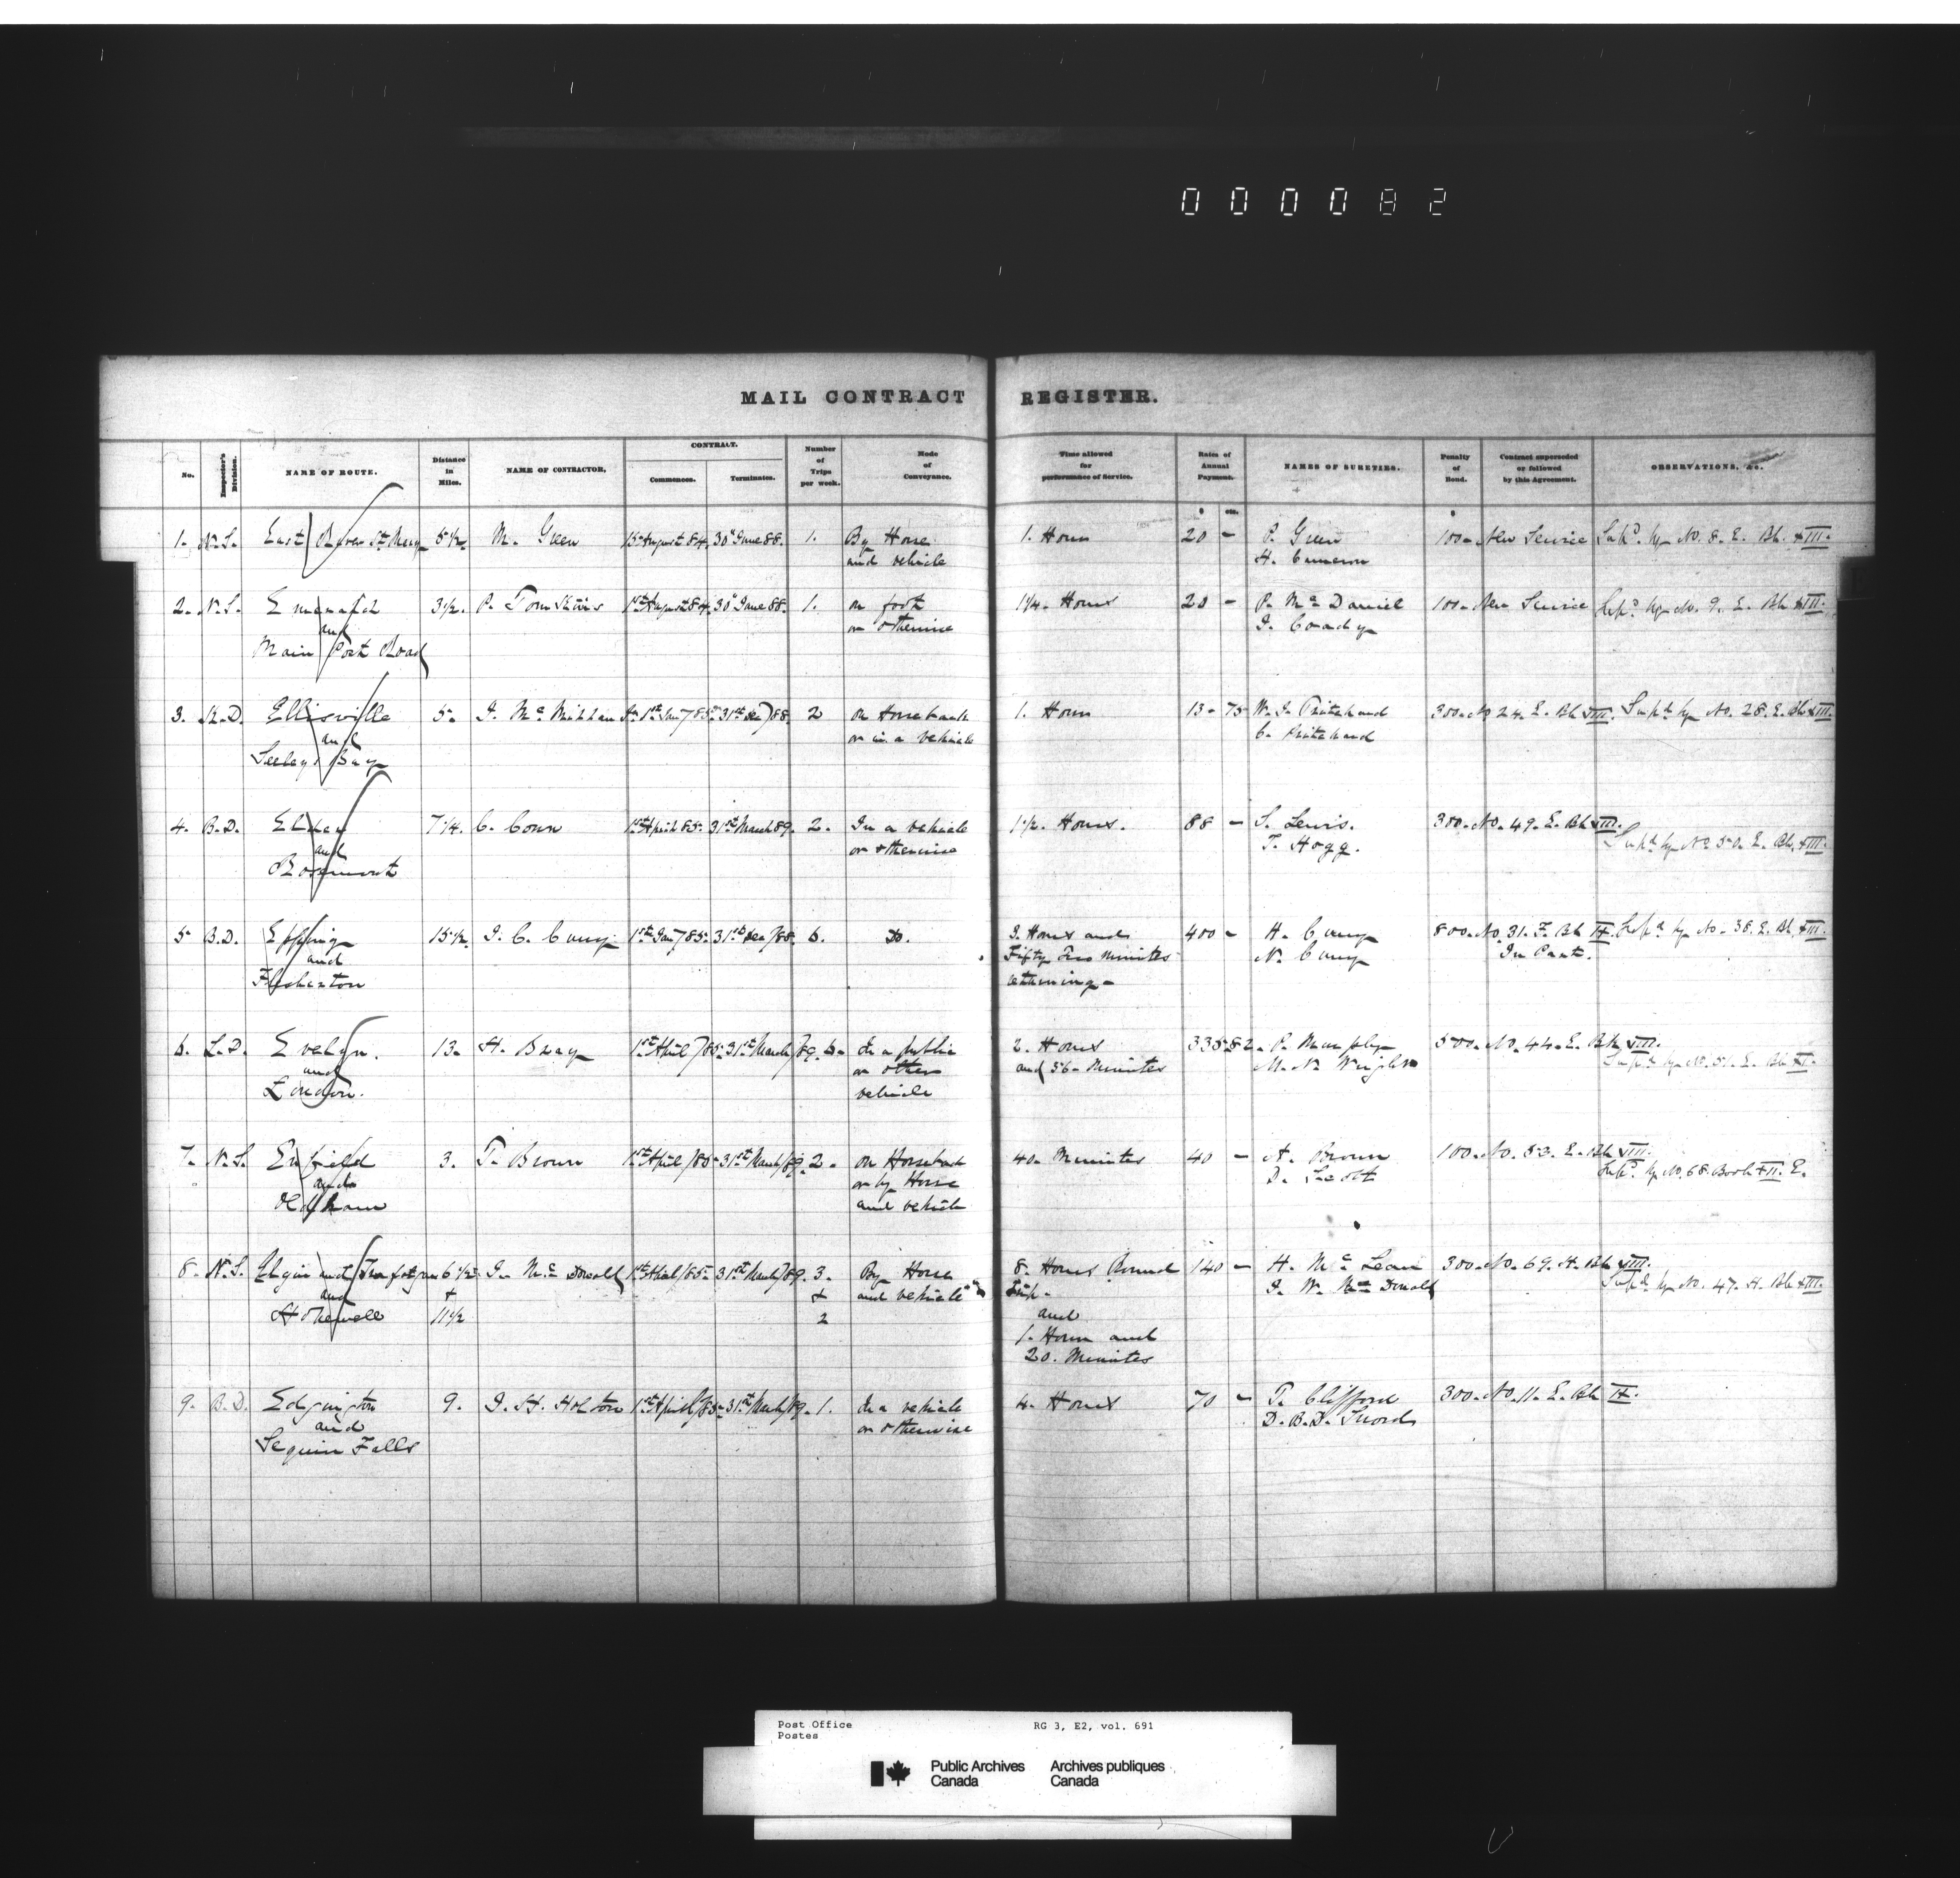 000082
MAIL CONTRACT REGISTER.
No. Inspector's Division. NAME OF ROUTE. Distance in Miles. NAME OF CONTRACTOR. CONTRACT. Commences. Terminates. Number of Trips per week. Mode of Conveyance. Time allowed for performance of Service. Rates of Annual Payment. NAMES OF SURETIES. Penalty of Bond. Contract superseded or followed by this Agreement. OBSERVATIONS, &c.
$ cts. $
1. N.S. East River St Mary 5 1/2. M. Green 15 August 84. 30" June 88. 1. By Horse 1. Hour 20 - P. Green 100 - New Service Supd. by No. 8. E. Bk. XIII.
and vehicle H. Cameron
2. N.S. 3 1/2. P. 1st August 84. 30" June 88. 1. on foot 1 1/4. Hours 20 - P. Mc Daniel 100 - New Service Supd. by No. 9. E. Bk XIII.
and or otherwise J. Coady
Main Post Road
3. K.D. Ellisville 5 - J. Mc 1st Jany 85 - 31st Dec 88. 2 on Horseback 1. Hour 13 - 75 W. J. Pritchard 300 - No 24. E. Bk VIII. Supd by No. 28. E. Bk XIII.
and or in a vehicle C. Pritchard
Seeleys Bay
4. B.D. 7 1/4. C. Conn 1st April 85 - 31st March 89. 2. In a vehicle 1 1/2. Hours. 88 - S. Lewis. 300 - No. 49. E. Bk VIII.
and or otherwise T. Hogg. Supd by No 50. E. Bk. XIII.
Rosemont
5 B.D. Epping 15 1/2. J. C. 1st Jany 85 - 31st Dec 88. 6. Do. 3. Hours and 400 - H. 800 - No. 31. F. Bk IX. Supd by No. 38. E. Bk. XIII.
and Fifty Two Minutes N. In Part.
Flesherton returning -
6. L.D. Evelyn. 13. H. Bray 1st April 85 - 31st March 89. 6. In a public 2. Hours 335 82. P. Murphy 500 - No. 44. E. Bk VIII.
and or other and 56 - Minutes M. N. Supd by No. 51. E. Bk XI.
London. vehicle
7. N.S. Enfield 3. T. Brown 1st April 85 - 31st March 89. 2. on Horseback 40. Minutes 40 - A. Brown 100 - No. 53. E. Bk VIII.
and or by Horse D. Scott Supd. by No. 68. Book XII. E.
Oldham and vehicle
8. N.S. Elgin and 6 1/2 J. Mc Donald 1st April 85 - 31st March 89. 3. By Horse 8. Hours Round 140 - H. Mc Lean 300 - No. 69. H. Bk VIII.
and + + and vehicle Trip - J. W. Mc Donald Supd by No. 47. H. Bk XIII.
Hopewell 11 1/2 2 and
1. Hour and
20. Minutes
9. B.D. Edgington 9. J. H. Holton 1st April 85 - 31st March 89. 1. In a vehicle 4. Hours 70 - T. Clifford 300 - No. 11. E. Bk IX.
and or otherwise D. B. D.
Seguin Falls
Post Office RG 3, E2, vol. 691
Postes
Public Archives Archives publiques
Canada Canada